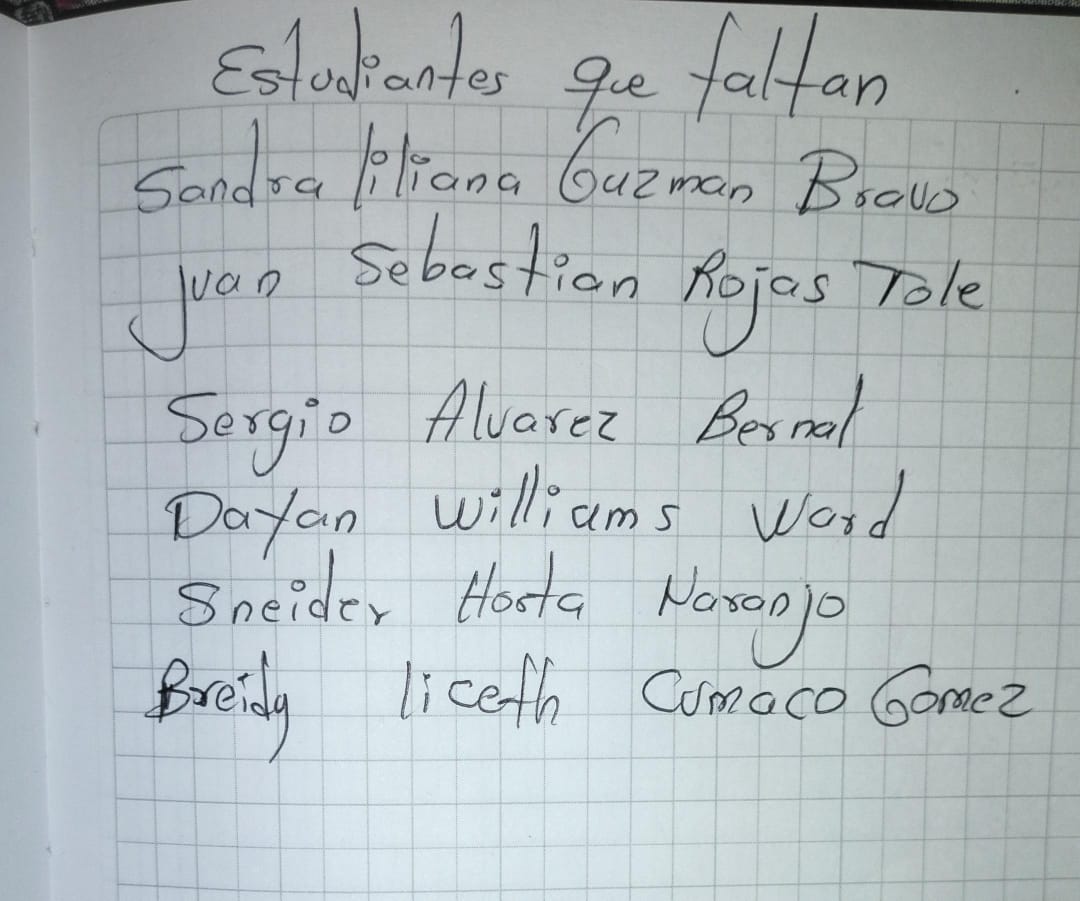 Estudiantes que faltan
Sandra liliana Guzman Bravo
juan Sebastian Rojas Tole
Sergio Alvarez Bernal
Dayan williams Ward
Sneider Horta Naranjo
Breidy liceth Cumaco Gomez